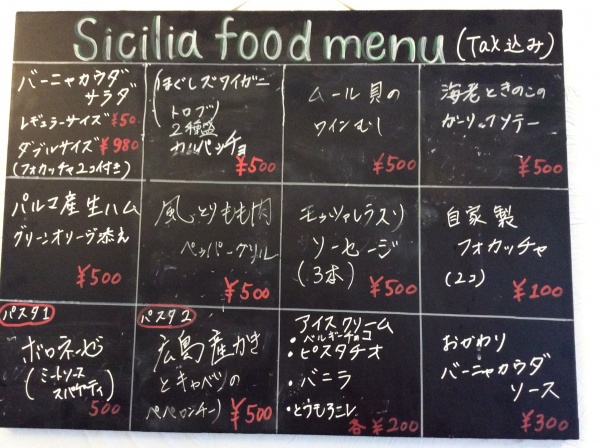 Sicilia food menu (Tax込み)
バーニャカウダ
サラダ
レギュラーサイズ ¥50
ダブルサイズ ¥980
(フォカッチャ2コ付き)
ほぐしズワイガニ
トロブリ
2種盛
カルパッチョ
¥500
ムール貝の
ワインむし
¥500
海老ときのこの
ガーリックソテー
¥500
パルマ産生ハム
グリーンオリーヴ添え
¥500
風とりもも肉
ペッパーグリル
¥500
モッツァレラスソ
ソーセージ
(3本) ¥500
自家製
フォカッチャ
(2コ) ¥100
パスタ1
ボロネーゼ
(ミートソース
スパゲティ)
500
パスタ2
広島産かき
とキャベツの
ペペロンチーノ ¥500
アイスクリーム
・ベルギーチョコ
・ピスタチオ
・バニラ
・とうもろこし
各¥200
おかわり
バーニャカウダ
ソース
¥300